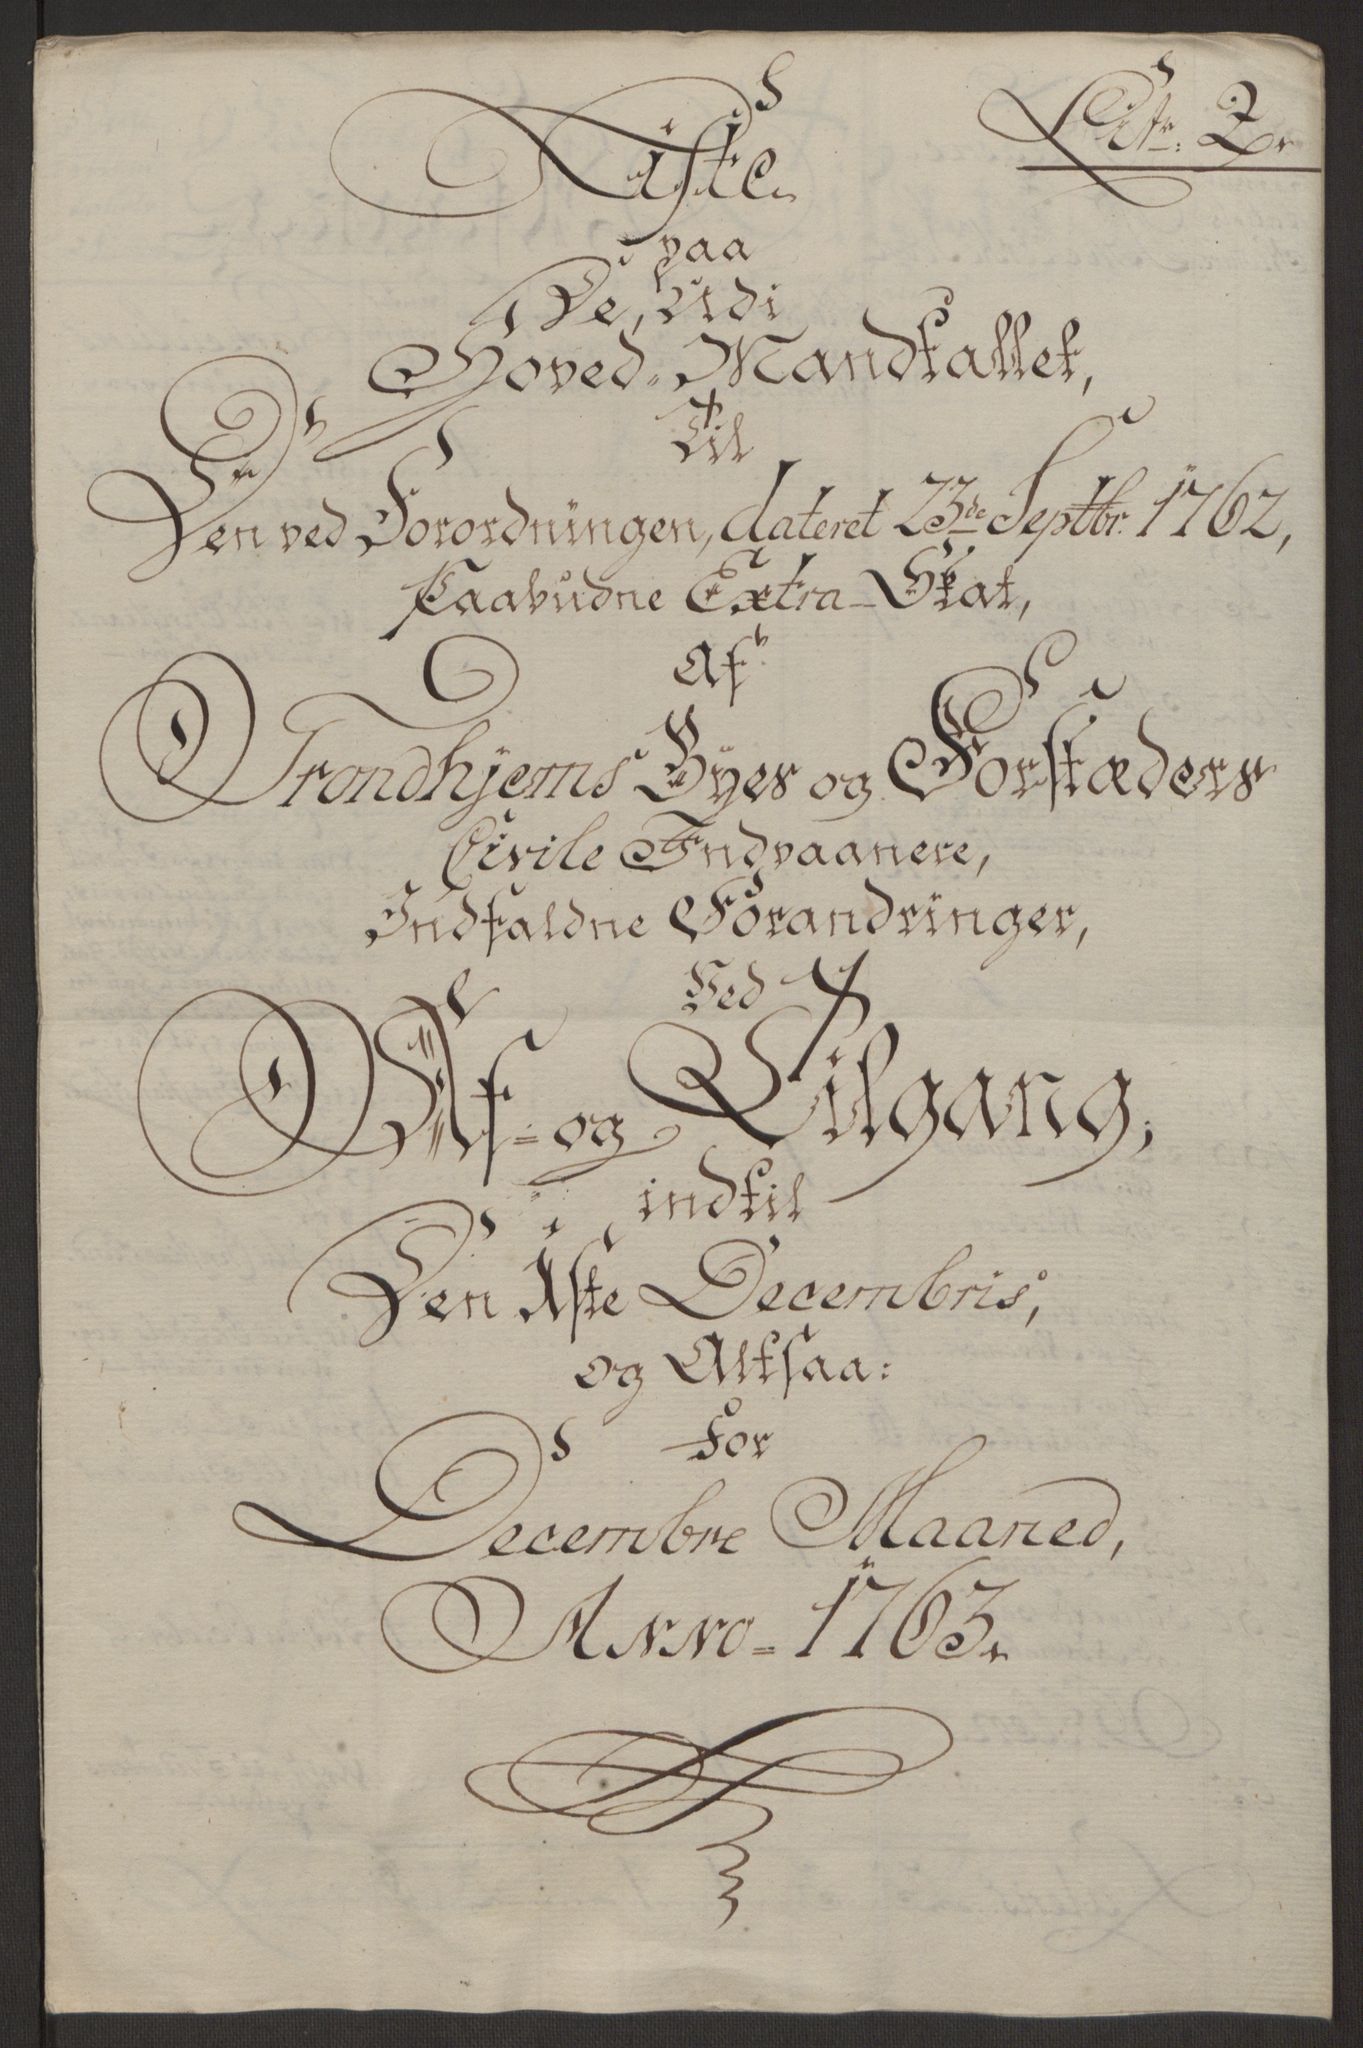 Litr. Z.
Liste
paa
De, udi
Hoved-Mandtallet,
Til
Den ved Forordningen, dateret 23de Septbr. 1762,
Paabudne Extra-Skat,
Af
Trondhjems Byes og Forstæders
Civile Indvaanere,
Indfaldne Forandringer,
Ved
Af- og Tilgang,
indtil
Den 1ste Decembris,
og Altsaa:
For
Decembre Maaned,
Anno-1763.